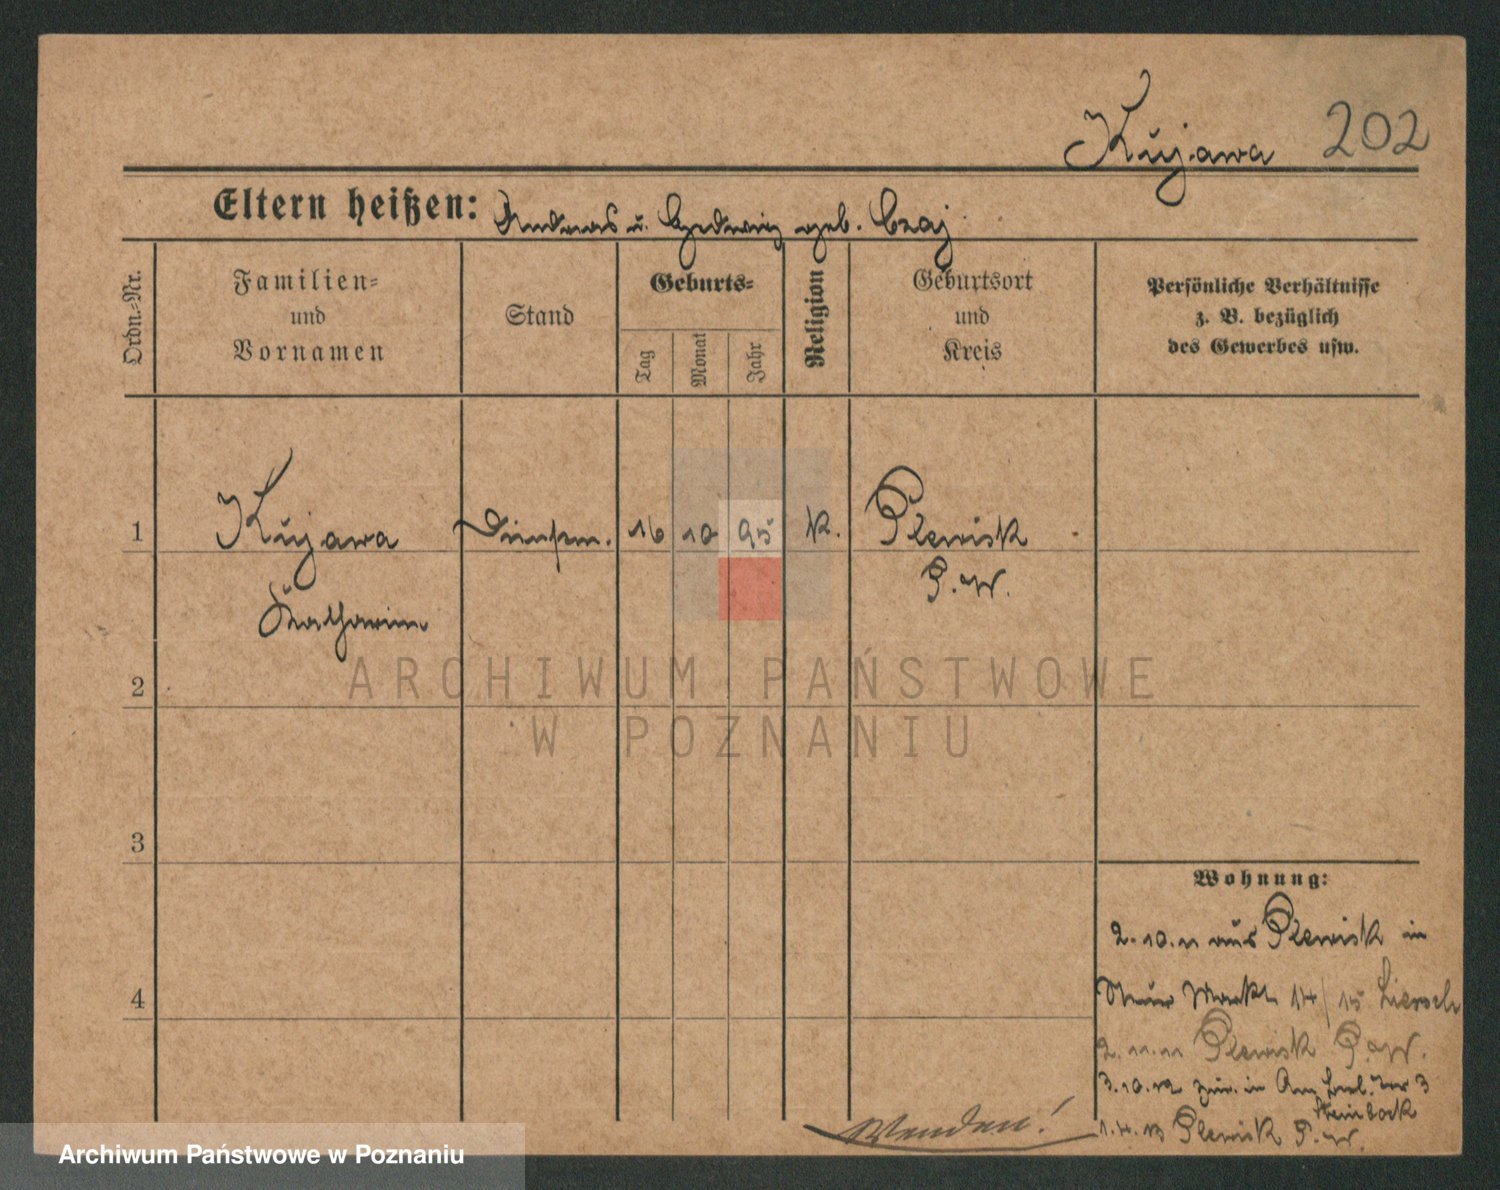 Kujawa 202
Eltern heißen: Andreas u. Hedwig geb. Czaj
Ordn.-Nr.
Familien-
und
Vornamen
Stand
Geburts-
Tag
Monat
Jahr
Religion
Geburtsort
und
Kreis
Persönliche Verhältnisse
z. B. bezüglich
des Gewerbes usw.
1 Kujawa Dienstm. 16 10 95 K. Plewisk
P. W.
Katharina
2
3
4
Wohnung:
2.10.11 aus Plewisk in
Neuer Markt 14/15 Liersch
2.11.11 Plewisk P. W.
3.10.12 zur. in Am 3
Steinbock
1.4.13 Plewisk P. W.
Wenden!
ARCHIWUM PAŃSTWOWE
W POZNANIU
Archiwum Państwowe w Poznaniu